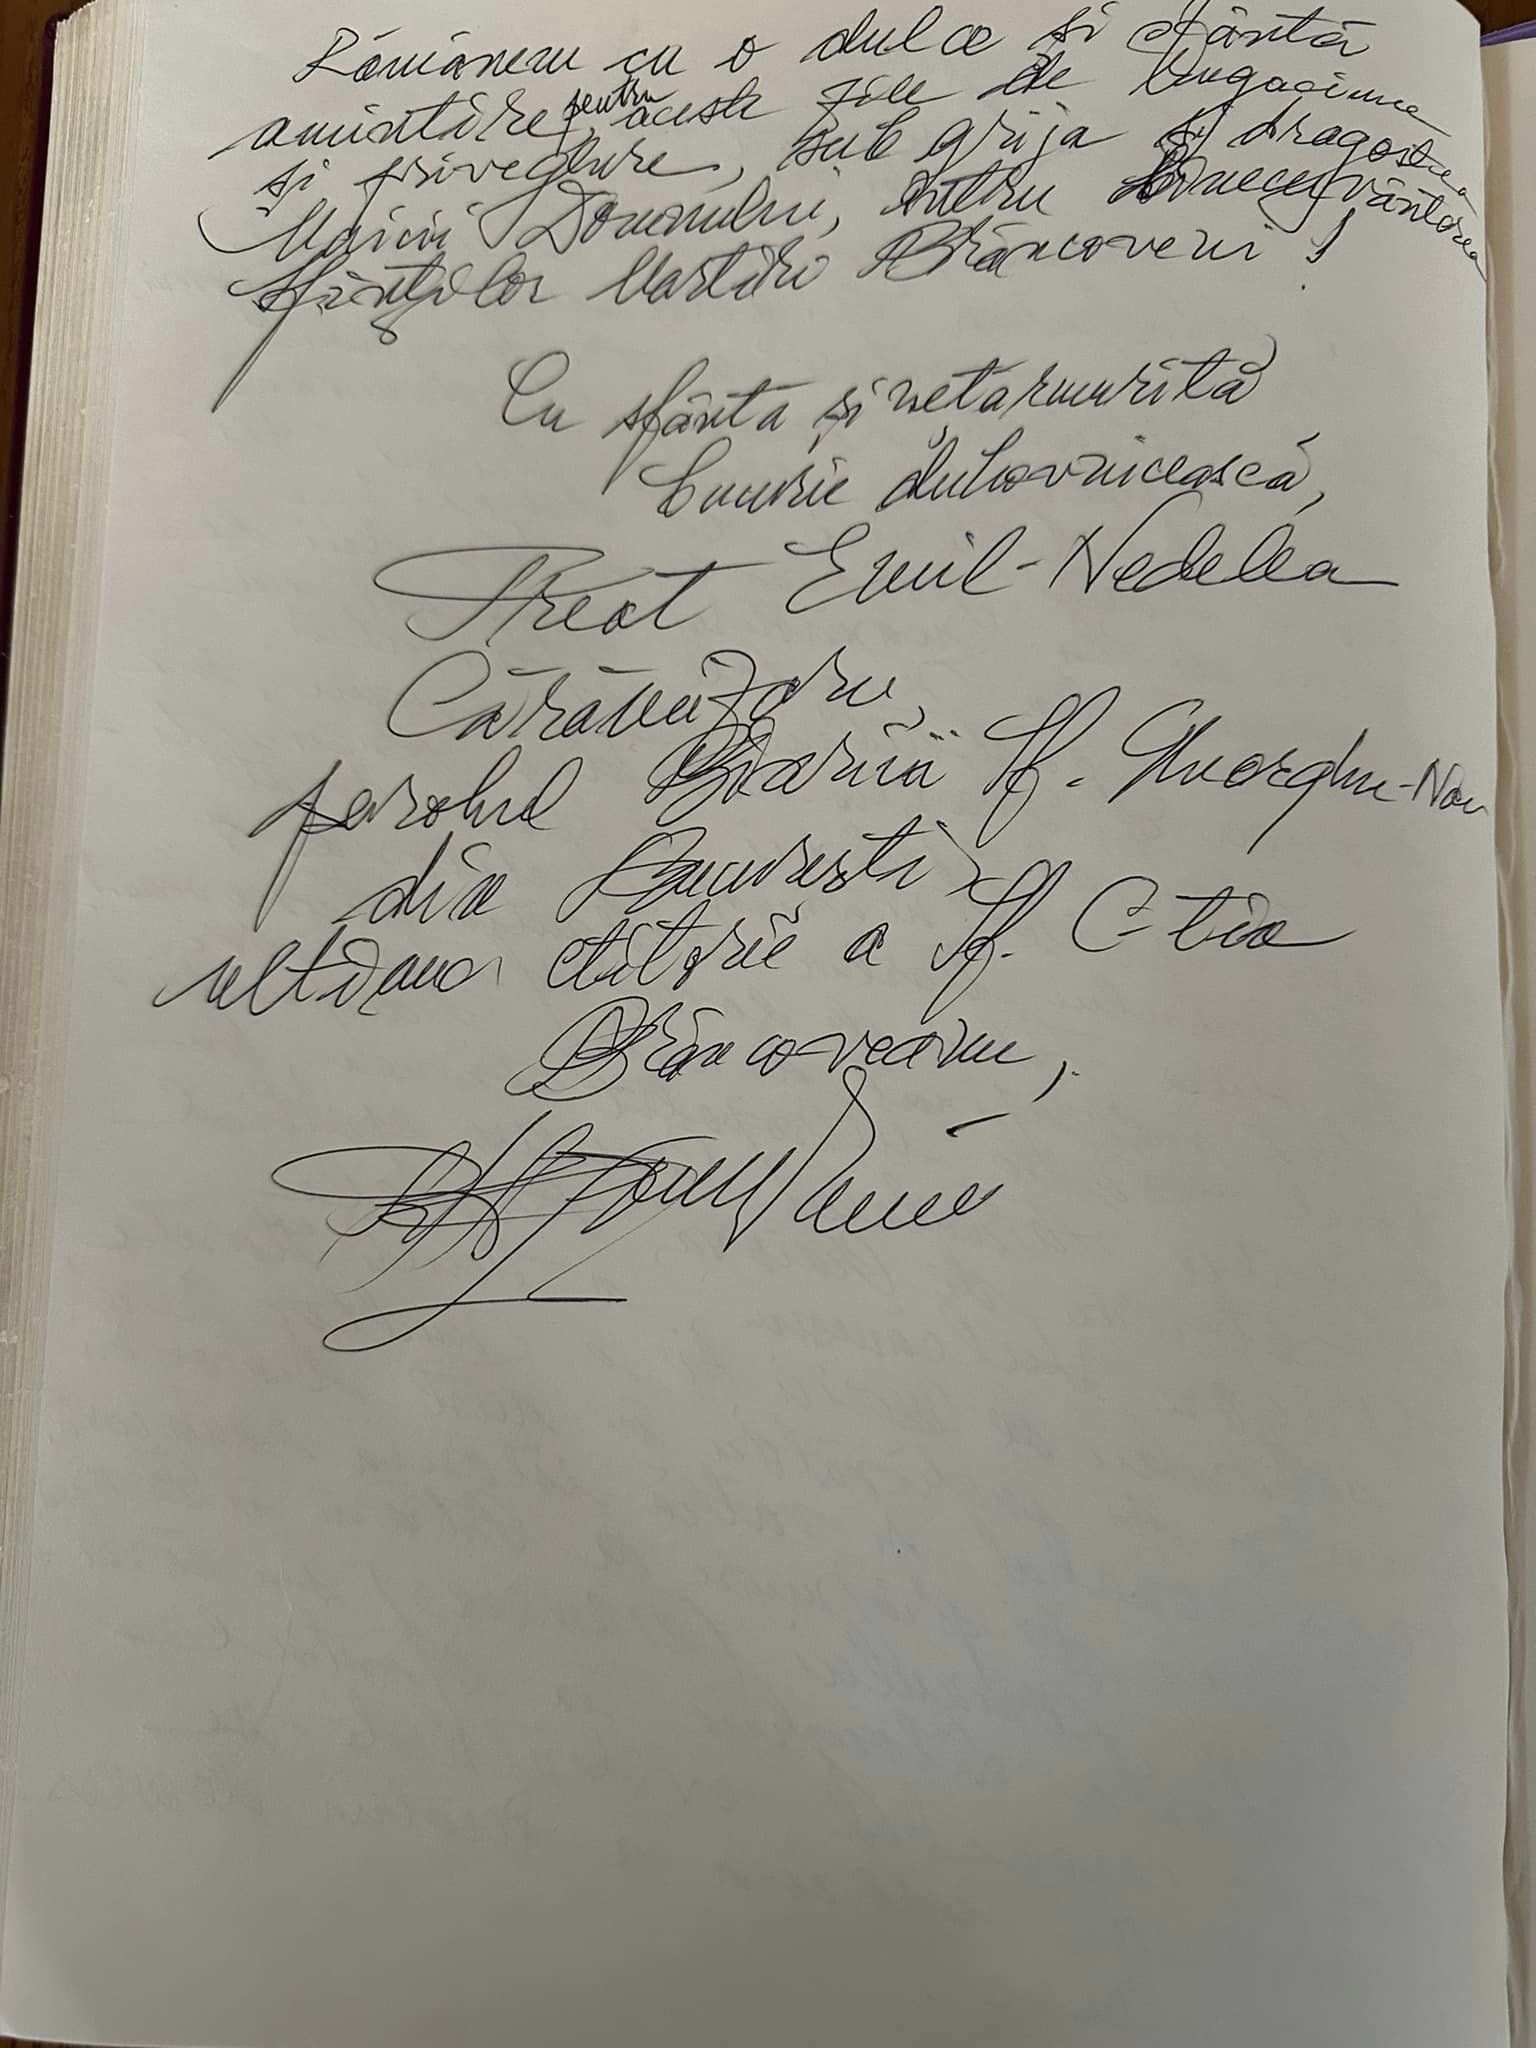 Rămânem cu o dulce și sfântă
amintire, pentru aceste zile de rugaciune
și priveghere, sub grija și dragostea
Maicii Domnului, întru binecuvântarea
Sfinților Martiri Brâncoveni!
Cu sfânta și nețarmurită
bucurie duhovnicească,
Preot Emil-Nedelea
Cărămizaru,
parohul Bisericii Sf. Gheorghe-Nou
din București,
ultima ctitorie a Sf. C-tin
Brâncoveanu,